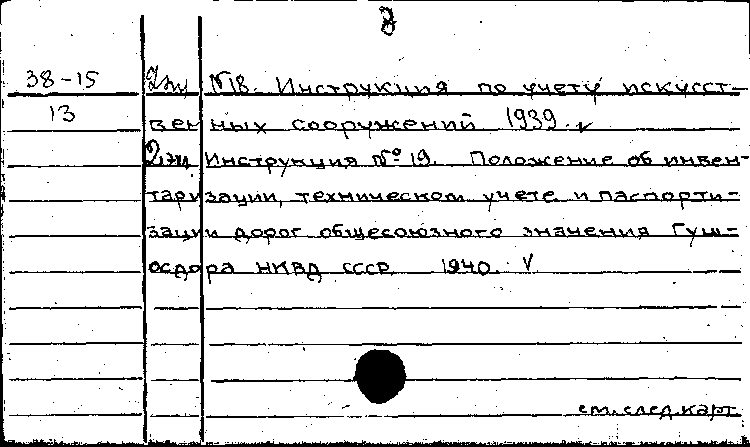 8
38-15 2эк N18. Инструкция по учету искусст-
13 венных сооружений 1939. v
2эк. Инструкция № 19. Положение об инвен-
таризации, техническом учете и паспорти-
зации дорог общесоюзного значения Гуш-
осдора НКВД СССР. 1940. V
см. след. карт.